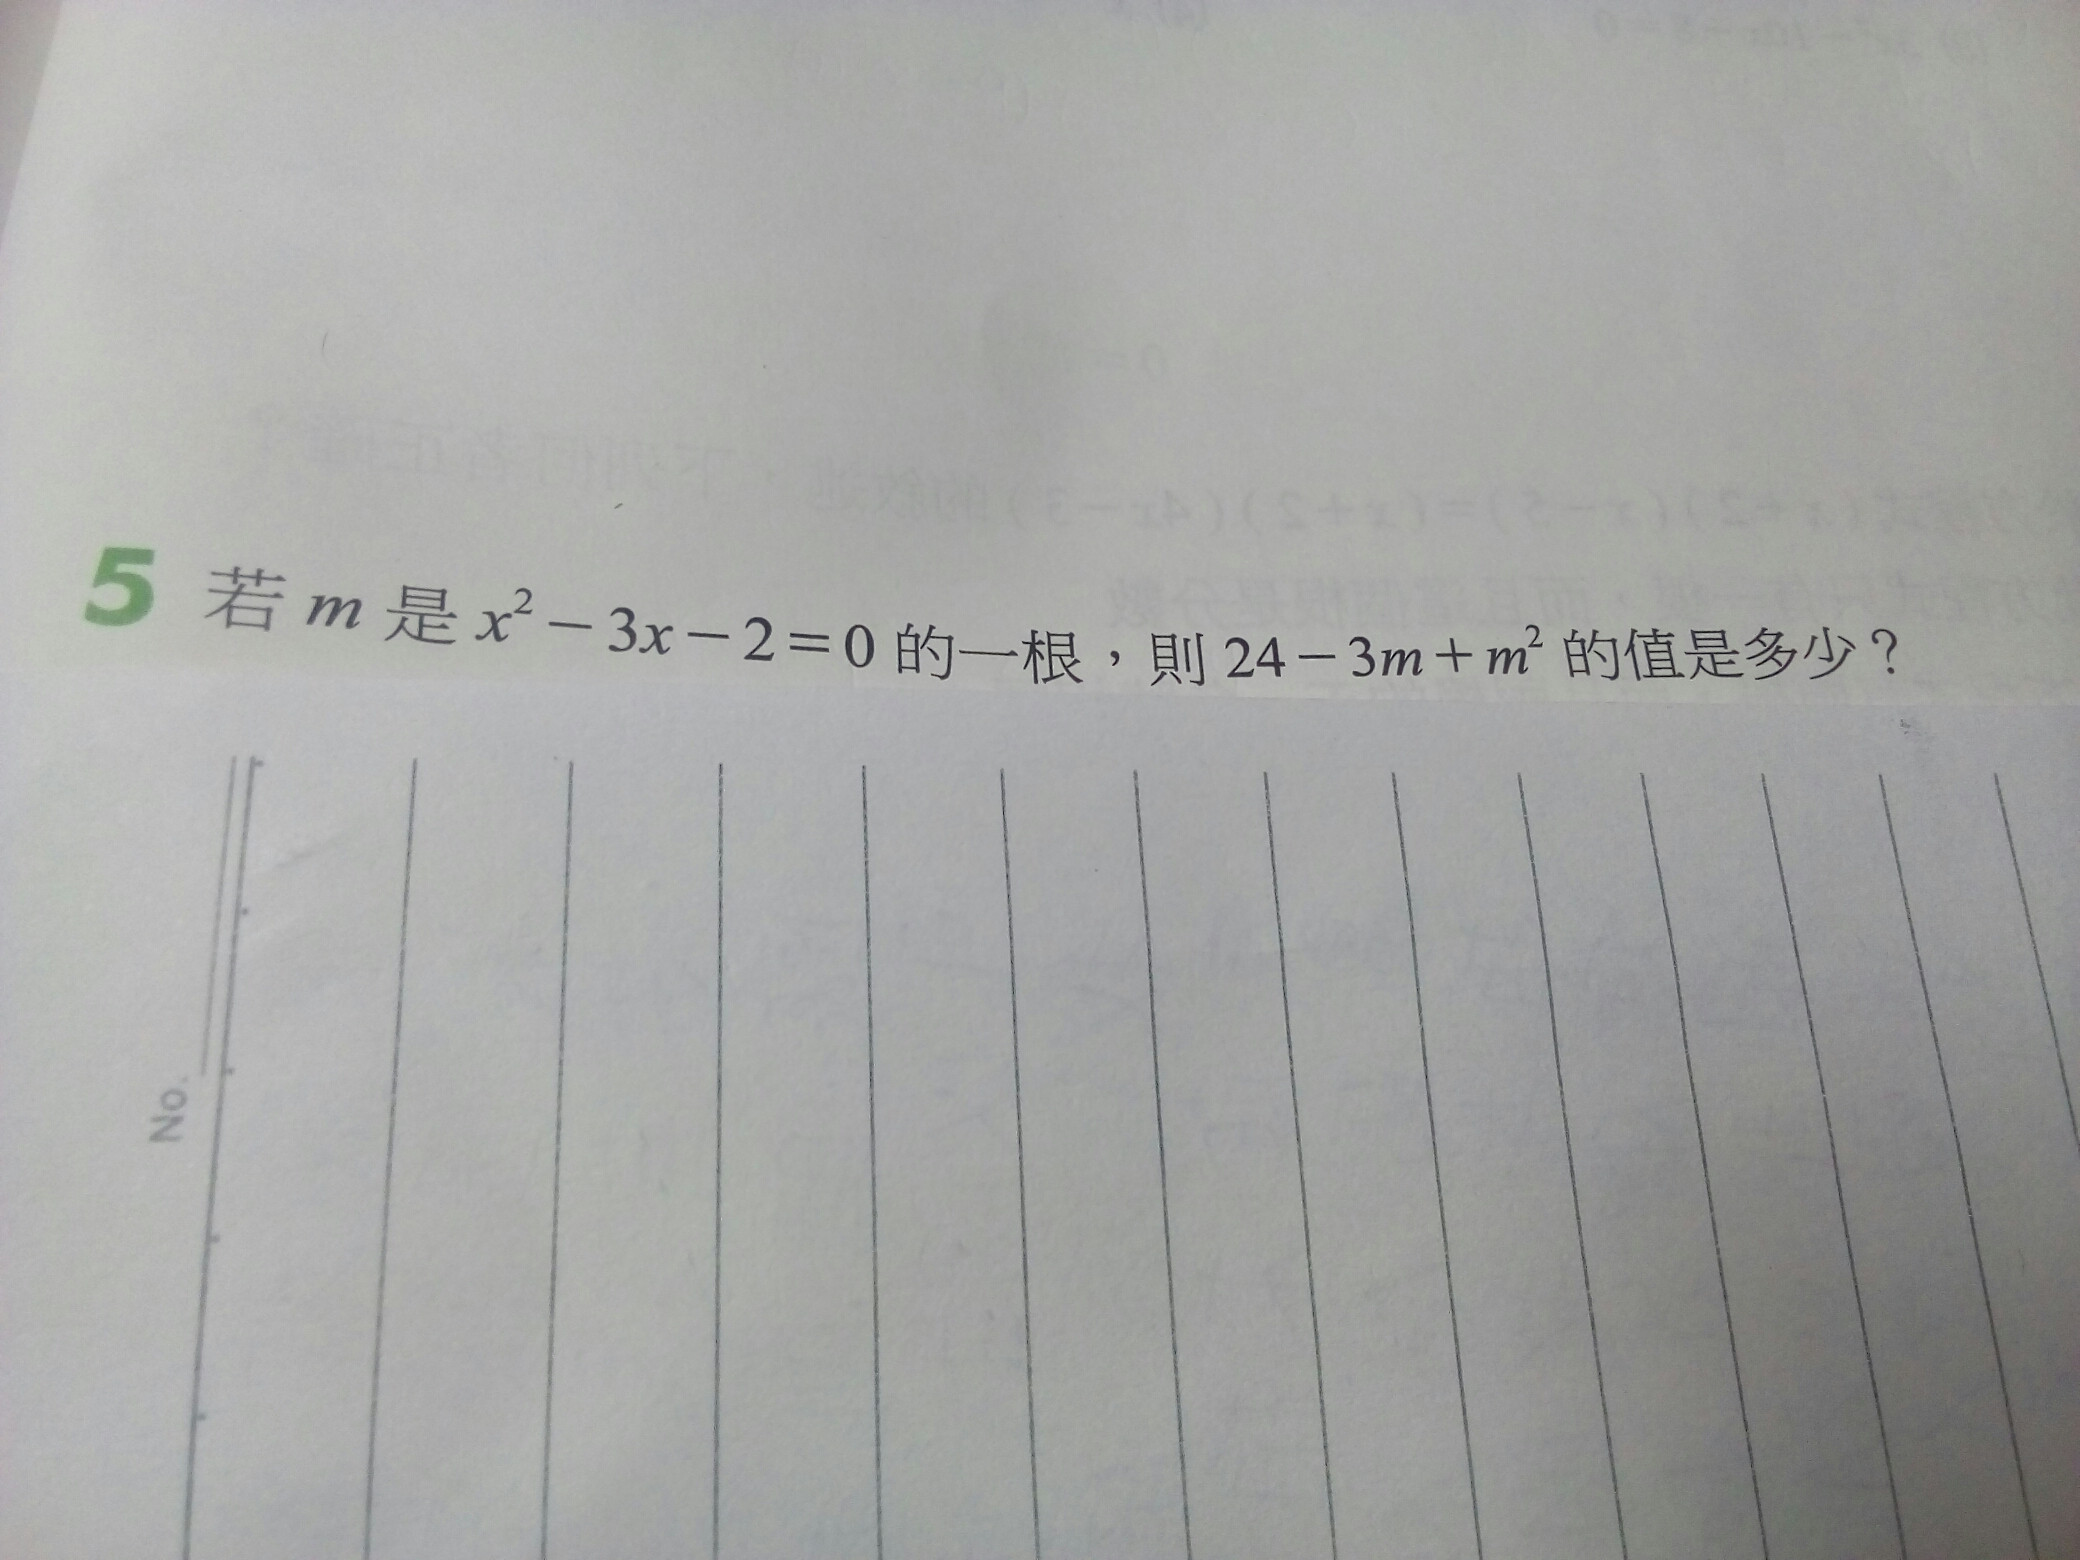 5 若 m 是 x² − 3x − 2 = 0 的一根，則 24 − 3m + m² 的值是多少？
No.